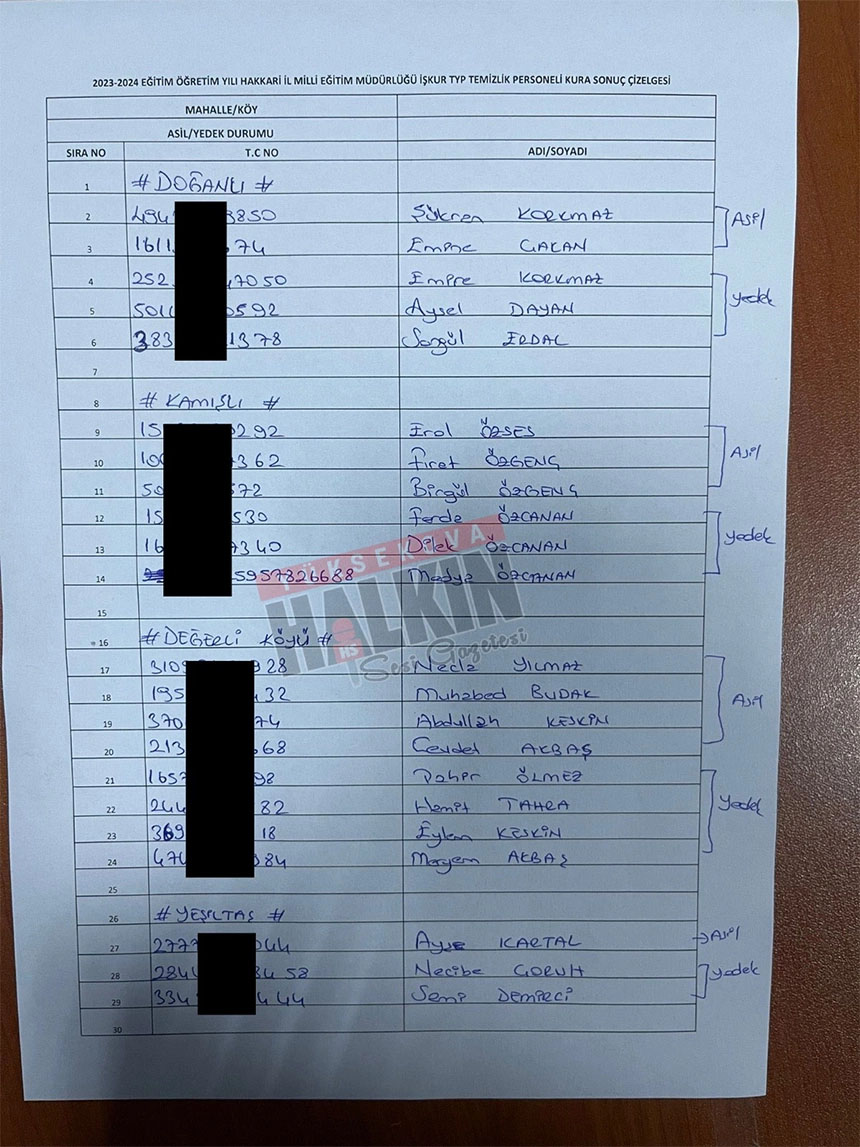 2023-2024 EĞİTİM ÖĞRETİM YILI HAKKARİ İL MİLLİ EĞİTİM MÜDÜRLÜĞÜ İŞKUR TYP TEMİZLİK PERSONELİ KURA SONUÇ ÇİZELGESİ
MAHALLE/KÖY
ASİL/YEDEK DURUMU
SIRA NO T.C NO ADI/SOYADI
1 # DOĞANLI #
2 494 3850 Şükran KORKMAZ Asil
3 1611 74 Emine CAKAN
4 252 47050 Emine KORKMAZ yedek
5 5011 0592 Aysel DAYAN
6 383 1378 Songül ERDAL
7
8 # KAMIŞLI #
9 15 292 Erol ÖZSES Asil
10 10 362 Fırat ÖZGENÇ
11 50 572 Birgül ÖZGENÇ
12 15 530 Ferde ÖZCANAN yedek
13 16 7340 Dilek ÖZCANAN
14 5957826688 Madya ÖZCANAN
15
YÜKSEKOVA HALKIN Sesi Gazetesi
HS
16 # DEĞERLİ KÖYÜ #
17 310 928 Necla YILMAZ Asil
18 195 432 Muhabed BUDAK
19 370 74 Abdullah KESKİN
20 213 668 Cevdet AKBAŞ
21 1657 98 ÖLMEZ yedek
22 244 82 Hamit TAHRA
23 369 18 Eylem KESKİN
24 474 84 Meryem AKBAŞ
25
26 # YEŞİLTAŞ #
27 2777 044 Ayşe KARTAL Asil
28 2844 3458 Necibe GORUH yedek
29 334 444 Semi DEMİRCİ
30